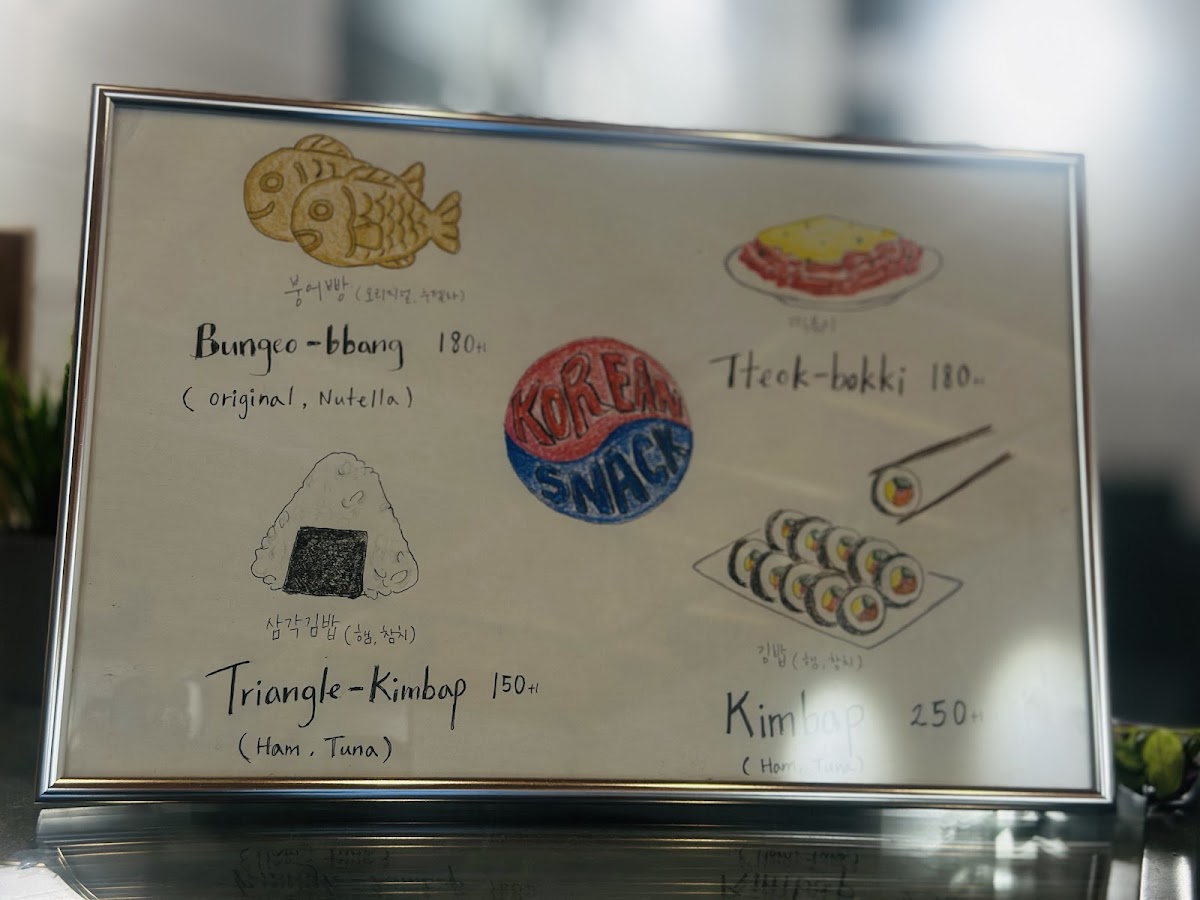 붕어빵 (오리지널, 누텔라)
Bungeo-bbang 180tl
(original, Nutella)
떡볶이
Tteok-bokki 180tl
KOREAN
SNACK
삼각김밥 (햄, 참치)
Triangle-Kimbap 150tl
(Ham, Tuna)
김밥 (햄, 참치)
Kimbap 250tl
(Ham, Tuna)